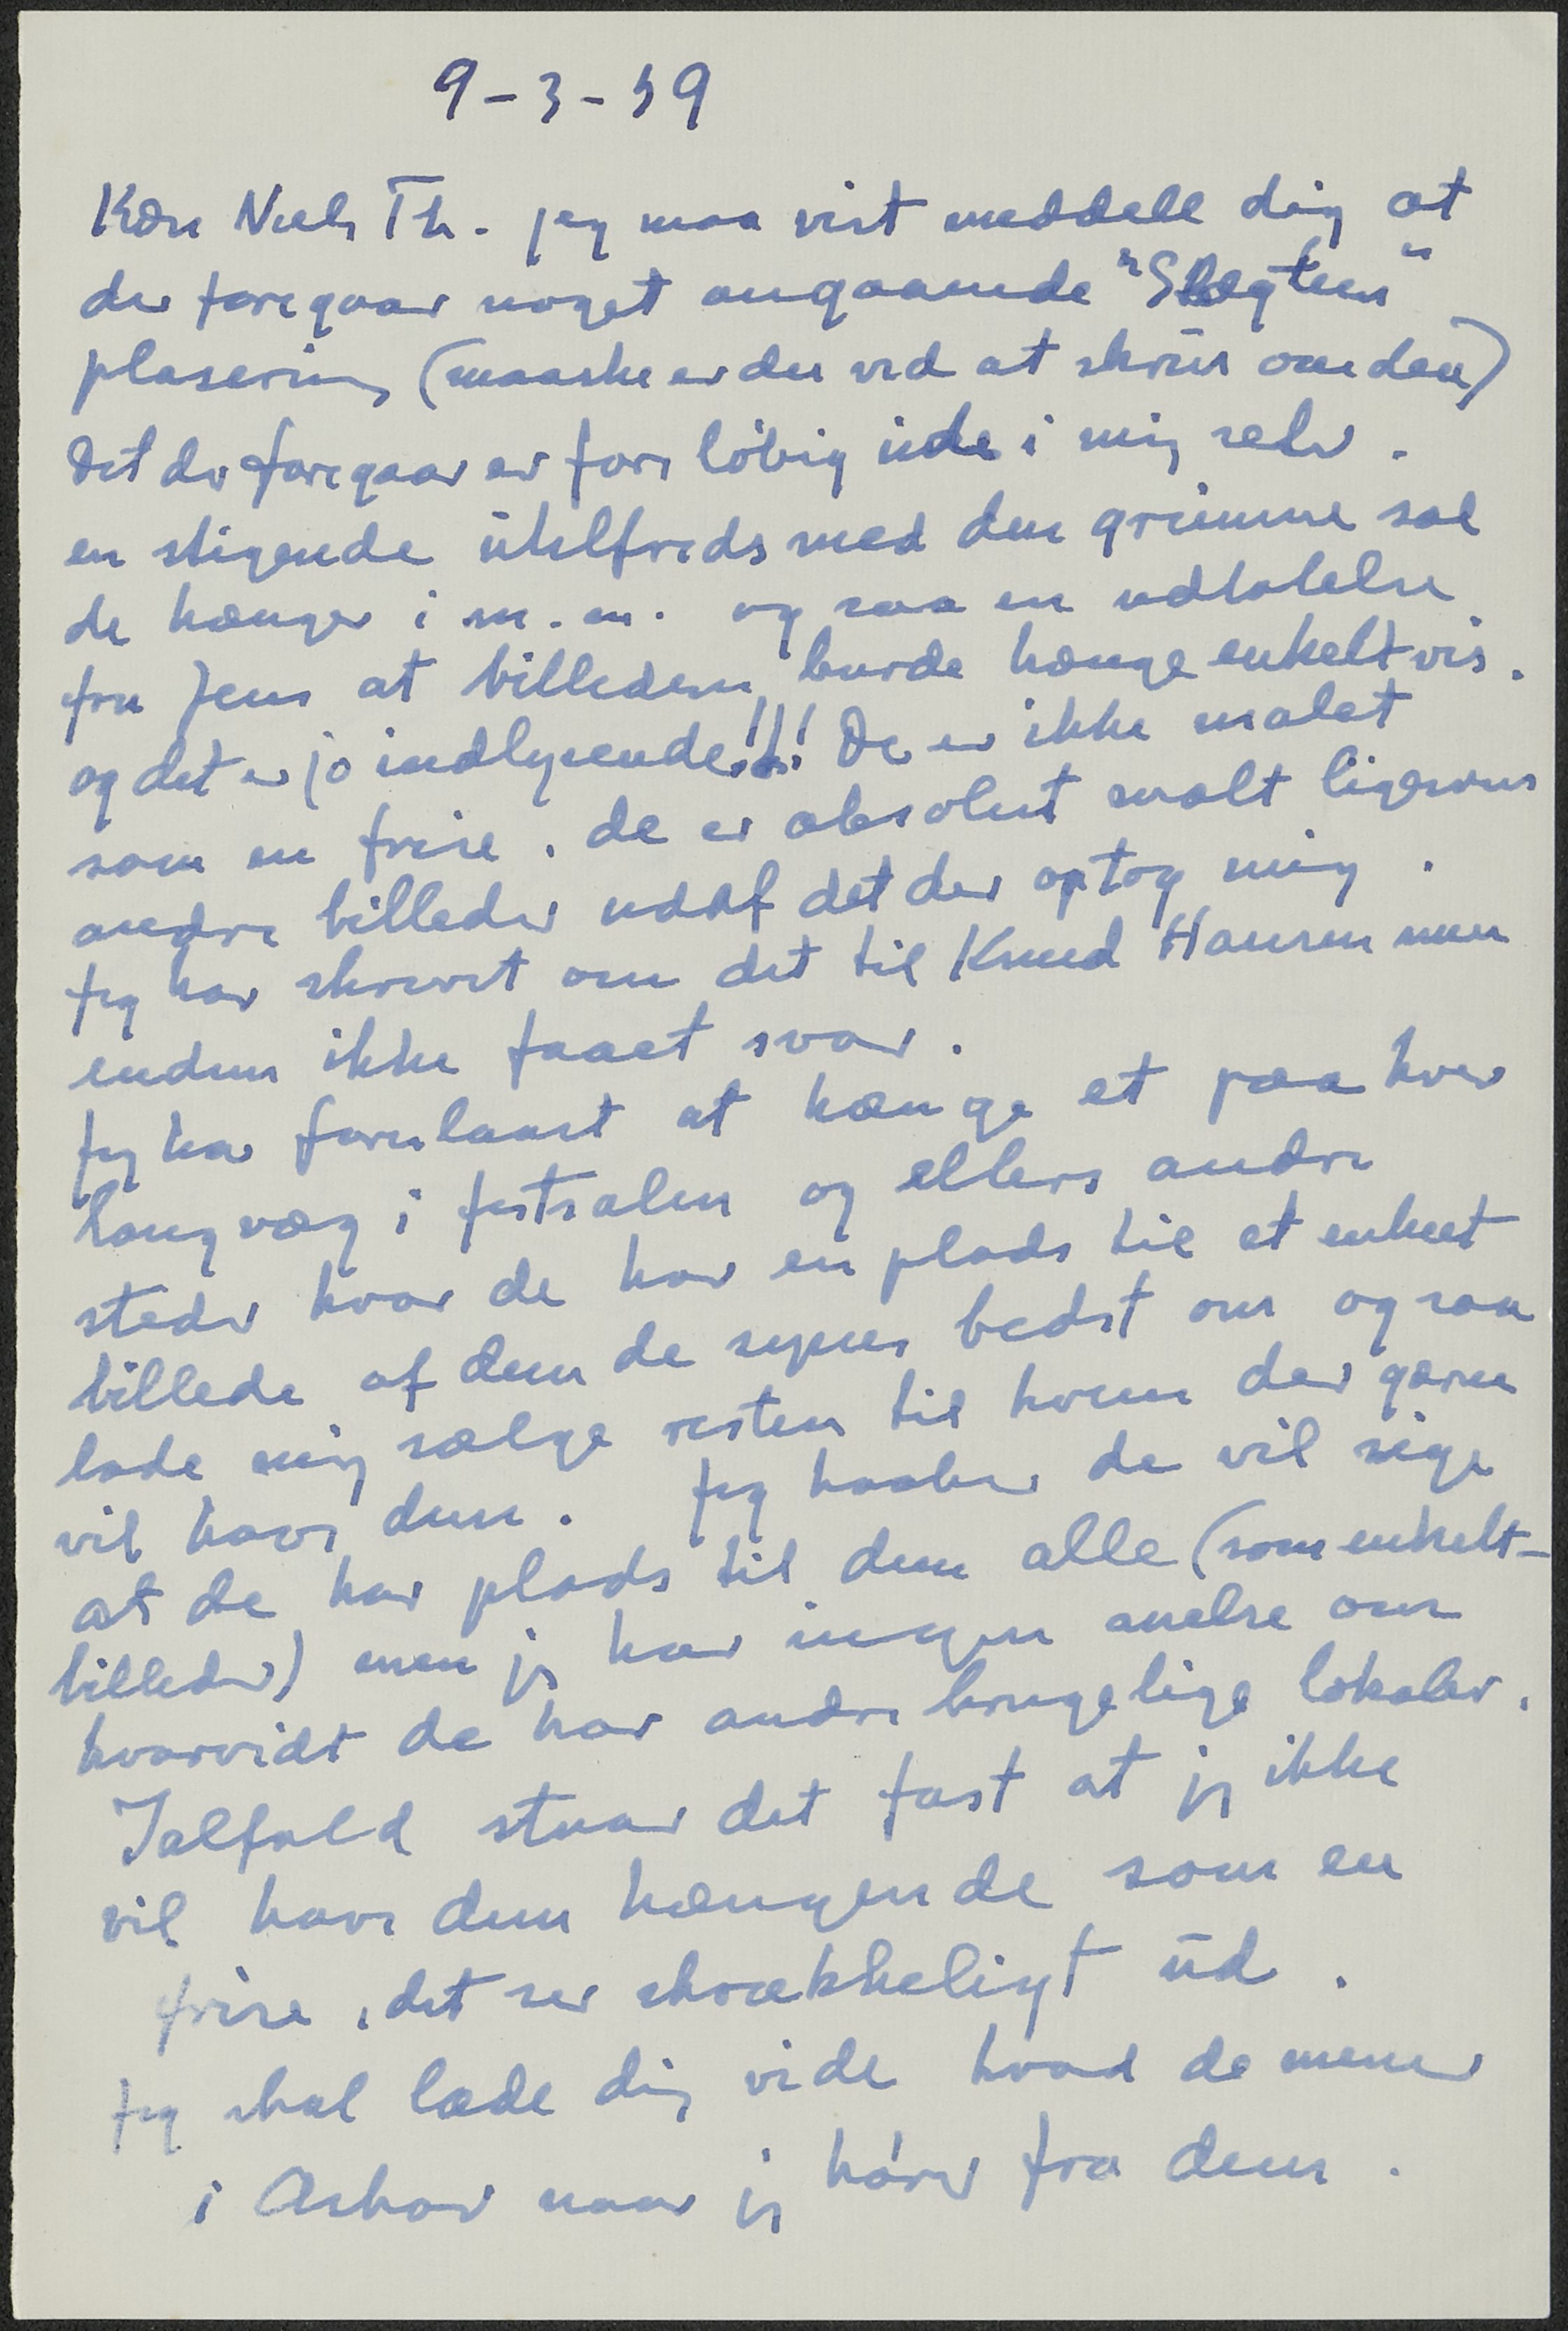 9-3-59
Kære Niels Th. jeg maa vist meddele dig at
der foregaar noget angaaende "Slægten"
plasering (maaske er du ved at skrive om den)
det der foregaar er foreløbig inde i mig selv.
en stigende utilfreds med den grimme sal
de hænger i m.m. og saa en udtalelse
fra Jens at billederne burde hænge enkeltvis.
og det er jo indlysende!!! De er ikke malet
som en frise, de er absolut malt ligesom
andre billeder udaf det der optog mig.
Jeg har skrevet om det til Knud Hansen men
endnu ikke faaet svar.
Jeg har foreslaaet at hænge et paa hver
langvæg i festsalen og ellers andre
steder hvor de har en plads til et enkelt
billede af dem de synes bedst om og saa
lade mig sælge resten til hvem der gærne
vil have dem. Jeg haaber de vil sige
at de har plads til dem alle (som enkelt-
billeder) men jeg har ingen anelse om
hvorvidt de har andre brugelige lokaler.
Ialfald staar det fast at jeg ikke
vil have dem hængende som en
frise, det ser skrækkeligt ud.
Jeg skal lade dig vide hvad de mener
i Askov naar jeg hører fra dem.